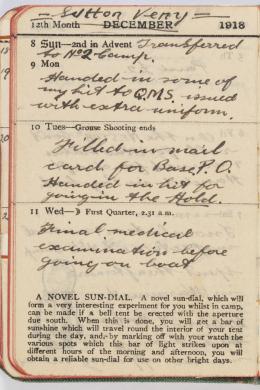 — Sutton Veny —
12th Month DECEMBER 1918
8 Sun—2nd in Advent Transferred
to No 2 Camp.
9 Mon
Handed in some of
my kit to Q.M.S. issued
with extra uniform.
10 Tues—Grouse Shooting ends
Filled in mail
card for Base P.O.
Handed in kit for
going in the Hold.
11 Wed—☽ First Quarter, 2.31 a.m.
Final medical
examination before
going on boat
A NOVEL SUN-DIAL. A novel sun-dial, which will
form a very interesting experiment for you whilst in camp,
can be made if a bell tent be erected with the aperture
due south. When this is done, you will get a bar of
sunshine which will travel round the interior of your tent
during the day, and by marking off with your watch the
various spots which this bar of light strikes upon at
different hours of the morning and afternoon, you will
obtain a reliable sun-dial for use on other bright days.